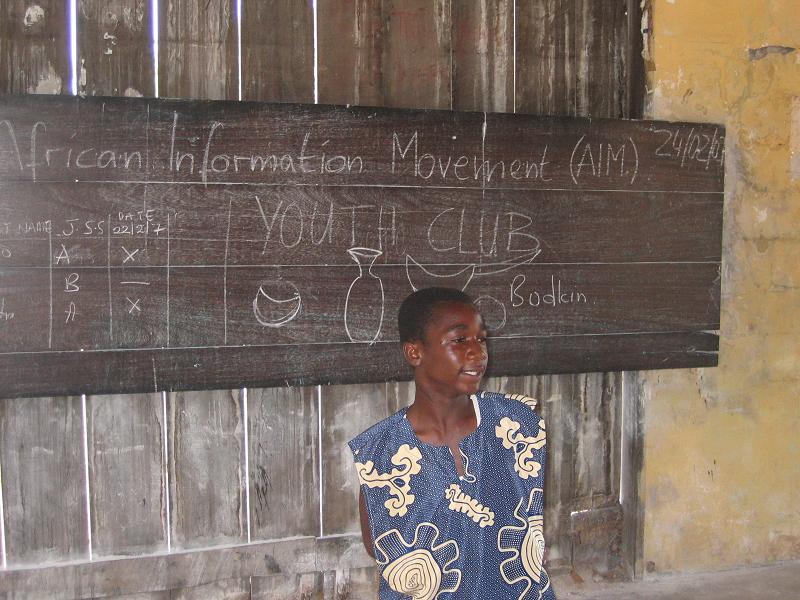 African Information Movement (AIM.) 24/02/0
YOUTH CLUB
NAME J.S.S DATE 22/2/7
A X
B —
A X
Bodkin